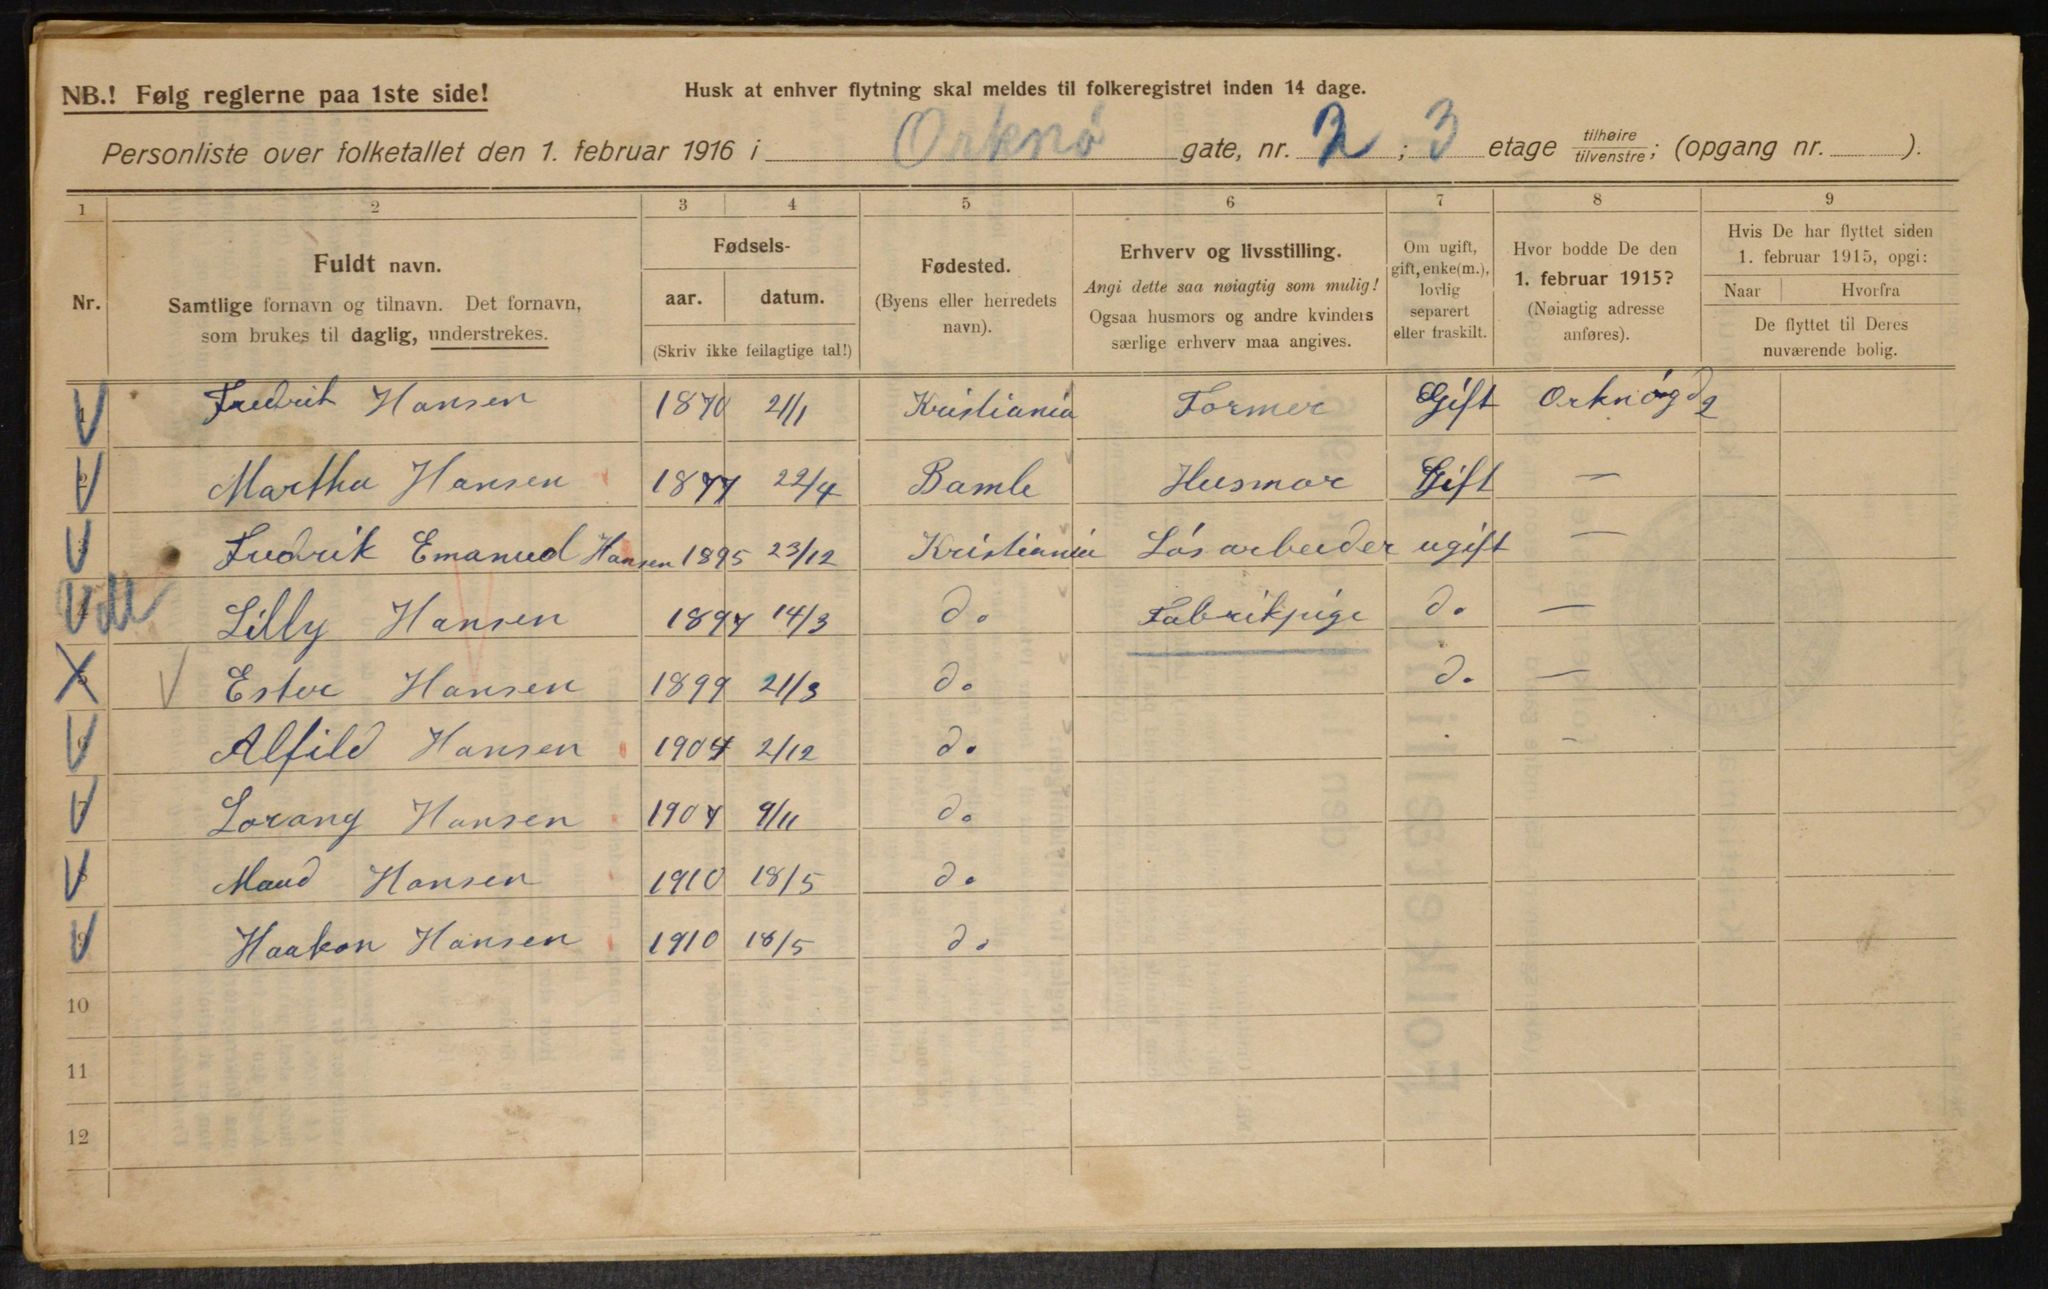 NB.! Følg reglerne paa 1ste side!
Husk at enhver flytning skal meldes til folkeregistret inden 14 dage.
Personliste over folketallet den 1. februar 1916 i Orknø gate, nr. 2 ; 3 etage tilhøire/tilvenstre; (opgang nr. ).
1 2 3 4 5 6 7 8 9
Nr.
Fuldt navn.
Samtlige fornavn og tilnavn. Det fornavn,
som brukes til daglig, understrekes.
Fødsels-
aar. datum.
(Skriv ikke feilagtige tal!)
Fødested.
(Byens eller herredets
navn).
Erhverv og livsstilling.
Angi dette saa nøiagtig som mulig!
Ogsaa husmors og andre kvinders
særlige erhverv maa angives.
Om ugift,
gift, enke(m.),
lovlig
separert
eller fraskilt.
Hvor bodde De den
1. februar 1915?
(Nøiagtig adresse
anføres).
Hvis De har flyttet siden
1. februar 1915, opgi:
Naar Hvorfra
De flyttet til Deres
nuværende bolig.
1 Fredrik Hansen 1870 21/1 Kristiania Former Gift Orknøgd 2
2 Martha Hansen 1877 22/4 Bamle Husmor Gift —
3 Fredrik Emanuel Hansen 1895 23/12 Kristiania Løsarbeider ugift —
4 Lilly Hansen 1897 14/3 do Fabrikpige do —
5 Ester Hansen 1899 21/3 do do —
6 Alfild Hansen 1904 2/12 do —
7 Lorang Hansen 1907 9/11 do
8 Maud Hansen 1910 18/5 do
9 Haakon Hansen 1910 18/5 do
10
11
12